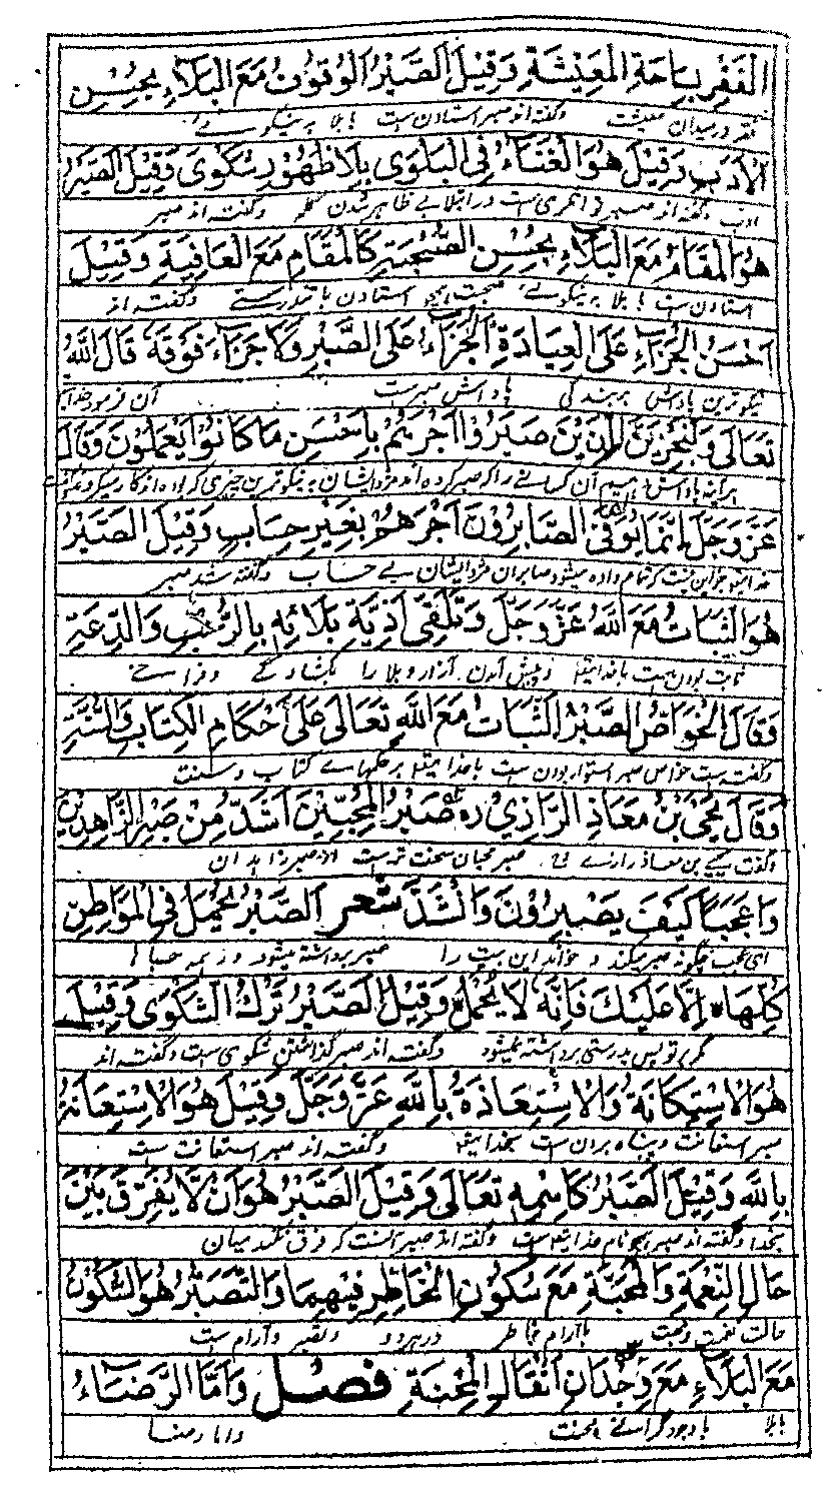 الفَقْرِ بِسَاحَةِ المَعِيْشَةِ وَقِيْلَ الصَّبْرُ الوُقُوْفُ مَعَ البَلَاءِ بِحُسْنِ
فقر در میدان معیشت وگفته اند صبر استادن ست با بلا به نیکوئی
الاَدَبِ وَقِيْلَ هُوَ الْفَنَاءُ فِي البَلْوٰى بِلَا ظُهُوْرِ شَكْوٰى وَقِيْلَ الصَّبْرُ
ادب وگفته اند صبر توانگری ست در ابتلا بے ظاهر شدن گله وگفته اند صبر
هُوَ المَقَامُ مَعَ البَلَاءِ بِحُسْنِ الصُّحْبَةِ كَالْمَقَامِ مَعَ العَافِيَةِ وَقِيْلَ
استادن ست با بلا به نیکوئی صحبت همچو استادن با تندرستی وگفته اند
اَحْسَنُ الْجَزَاءِ عَلَى العِبَادَةِ اَلْجَزَاءُ عَلَى الصَّبْرِ وَلَا جَزَاءَ فَوْقَهٗ قَالَ اللّٰهُ
نیکوترین پاداش بر بندگی پاداش صبر ست آن فرمود خدای
تَعَالٰى وَلَنَجْزِيَنَّ الَّذِيْنَ صَبَرُوْا اَجْرَهُمْ بِاَحْسَنِ مَا كَانُوْا يَعْمَلُوْنَ وَقَالَ
هر آئنه پاداش دهیم آن کسانے را که صبر کرده اند مزد ایشان به نیکوترین چیزی که
عَزَّ وَجَلَّ اِنَّمَا يُوَفَّى الصَّابِرُوْنَ اَجْرَهُمْ بِغَيْرِ حِسَابٍ وَقِيْلَ الصَّبْرُ
تمام داده میشود صابران مزد ایشان بے حساب وگفته شد صبر
هُوَ الثَّبَاتُ مَعَ اللّٰهِ عَزَّ وَجَلَّ وَتَلَقِّيْ اَذِيَّةِ بَلَائِهٖ بِالرُّحْبِ وَالدَّعَةِ
ثابت بودن ست با خدایتعالی و پیش آمدن آزار و بلا را بکشادگی و فراخی
وَقَالَ الْخَوَّاصُ الصَّبْرُ الثَّبَاتُ مَعَ اللّٰهِ تَعَالٰى عَلٰى اَحْكَامِ الكِتَابِ وَالسُّنَّةِ
وگفته ست خواص صبر استوار بودن ست با خدایتعالی بر حکمهای کتاب و سنت
وَقَالَ يَحْيَى بْنُ مَعَاذِ الرَّازِيْ رہ صَبْرُ الْمُحِبِّيْنَ اَشَدُّ مِنْ صَبْرِ الزَّاهِدِيْنَ
وگفت یحیی بن معاذ رازی صبر محبان سخت تر ست از صبر زاهدان
وَاعَجَبًا كَيْفَ يَصْبِرُوْنَ وَاَنْشَدَ شعر اَلصَّبْرُ يُحْمَلُ فِي المَوَاطِنِ
ای عجب چگونه صبر میکنند و خواند این بیت را صبر برداشته میشود در همه
كُلِّهَا ه اِلَّا عَلَيْكَ فَاِنَّهٗ لَا يُحْمَلُ ه وَقِيْلَ الصَّبْرُ تَرْكُ الشَّكْوٰى وَقِيْلَ
مگر بر تو پس بدرستی برداشته نمیشود وگفته اند صبر گذاشتن شکوی ست وگفته اند
هُوَ الْاِسْتِكَانَةُ وَالْاِسْتِعَاذَةُ بِاللّٰهِ عَزَّ وَجَلَّ وَقِيْلَ هُوَ الْاِسْتِعَانَةُ
صبر استعانت و پناه بردن ست بخدایتعالی وگفته اند صبر استعانت ست
بِاللّٰهِ وَقِيْلَ الصَّبْرُ كَاسْمِهٖ تَعَالٰى وَقِيْلَ الصَّبْرُ هُوَ اَنْ لَّا يُفَرِّقَ بَيْنَ
بخدا وگفته اند صبر همچو نام خدایتعالی ست وگفته اند صبر آنست که فرق نکند میان
حَالِ النِّعْمَةِ وَالْمِحْنَةِ مَعَ سُكُوْنِ الْخَاطِرِ فِيْهِمَا وَالتَّصَبُّرُ هُوَ السُّكُوْنُ
حالت نعمت و محنت با آرام خاطر در هر دو وتصبر و آرام ست
مَعَ البَلَاءِ مَعَ وِجْدَانِ اَثْقَالِ الْمِحْنَةِ فصل وَاَمَّا الرِّضَاءُ
با بلا با وجود گرانی محنت واما رضا